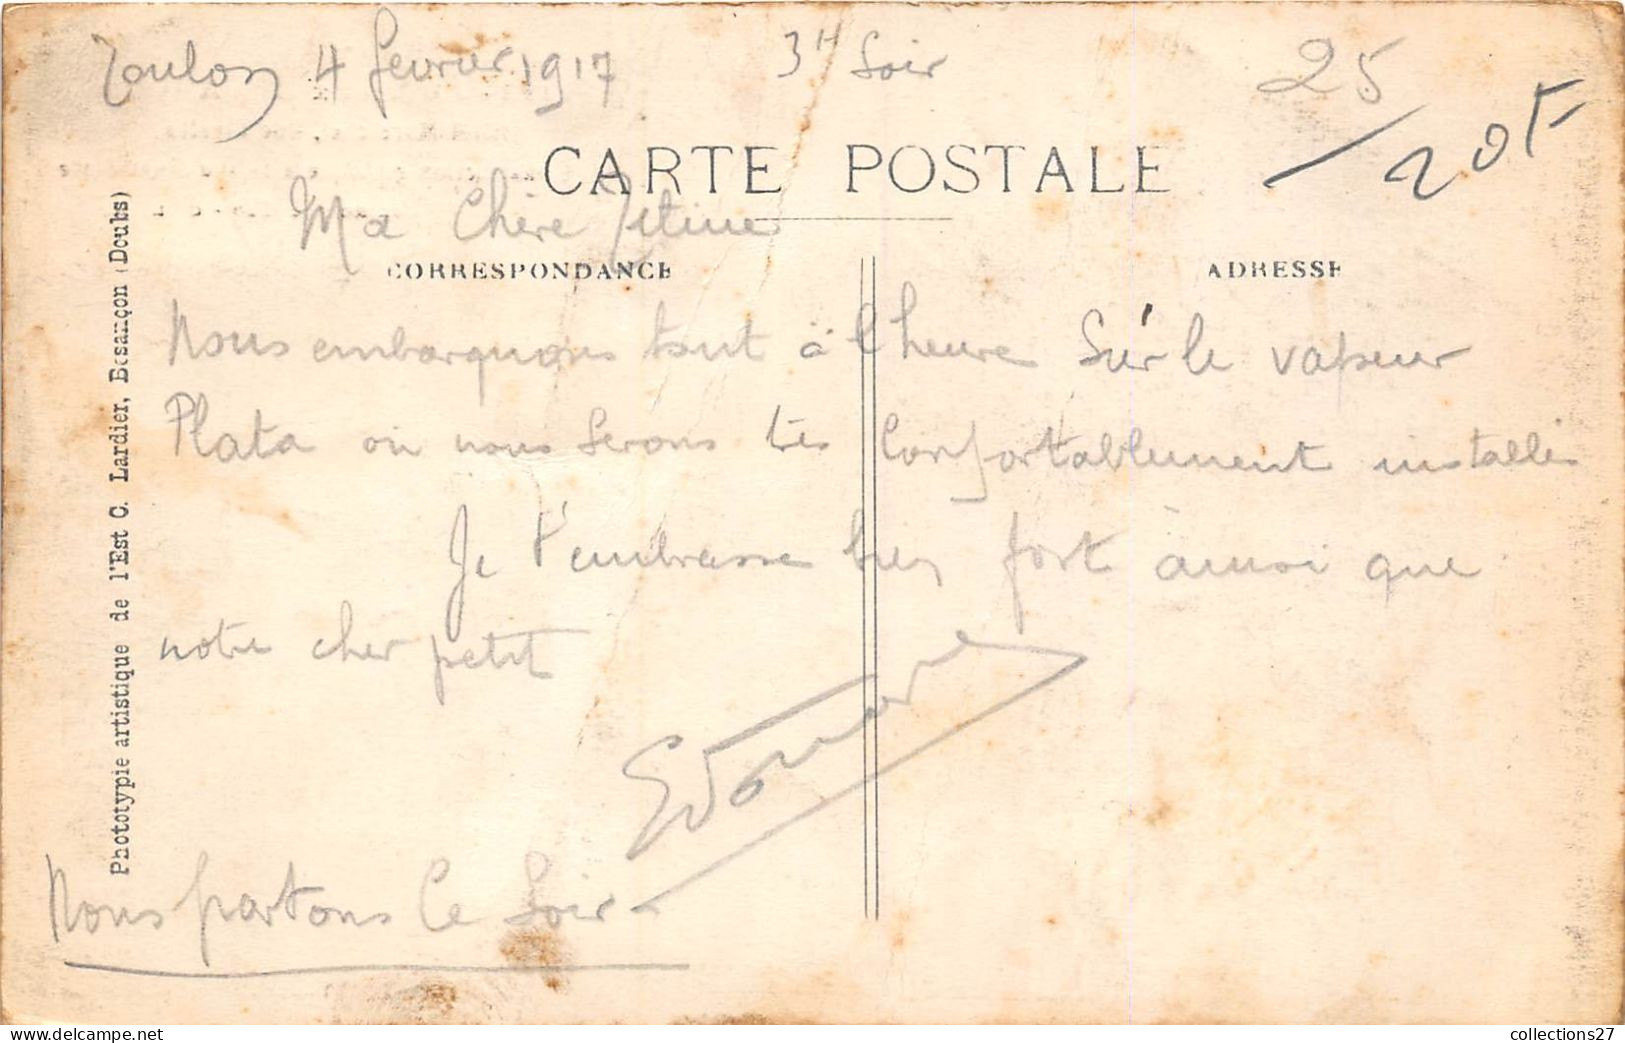 Toulon 4 fevrier 1917 3H Soir
25
20F
CARTE POSTALE
Ma Chère Titine
CORRESPONDANCE
ADRESSE
Nous embarquons tout à l'heure sur le vapeur
Plata où nous serons très confortablement installés
Je t'embrasse bien fort ainsi que
notre cher petit
Edouard
Nous partons ce soir
Phototypie artistique de l'Est C. Lardier, Besançon (Doubs)
collections27